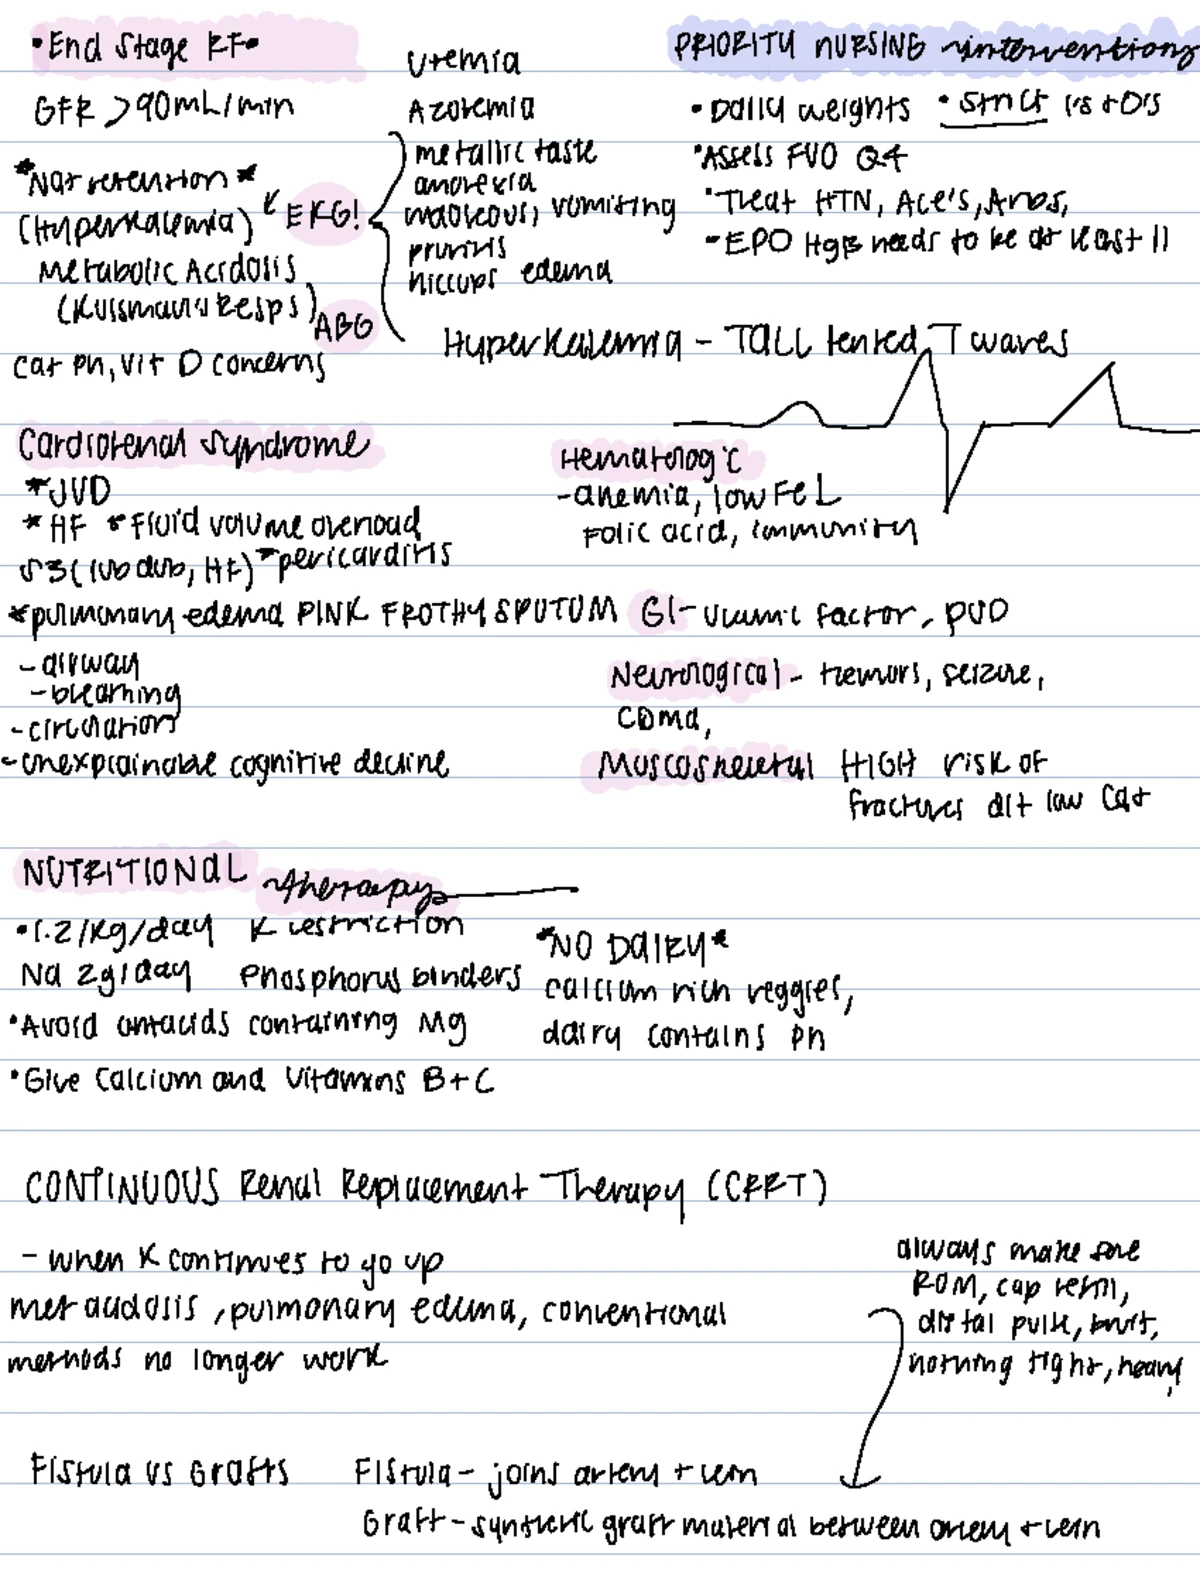 •End Stage RF•
GFR >90mL/min
*Na+ retention*
(Hyperkalemia)
EKG!
Metabolic Acidosis
(Kussmaul's Resps)
ABG
Ca+ Ph, Vit D concerns
Uremia
Azotemia
metallic taste
anorexia
nauseous, vomiting
pruritis
hiccups edema
PRIORITY NURSING interventions
•Daily weights •strict I's + O's
•Assess FVO Q4
•Treat HTN, Ace's, Arbs,
-EPO HgB needs to be at least 11
Hyperkalemia - TALL tented T waves
Cardiorenal Syndrome
*JVD
*HF *Fluid volume overload
S3 (lub dub, HF) *pericarditis
*pulmonary edema PINK FROTHY SPUTUM
-airway
-breathing
-circulation
-unexplainable cognitive decline
Hematologic
-anemia, low Fe L
Folic acid, immunity
GI- Uremic factor, PUD
Neurological - tremors, seizure,
coma,
Muscoskeletal HIGH risk of
fractures d/t low Ca+
NUTRITIONAL therapy
•1.2/kg/day K restriction
Na 2g/day Phosphorus binders
•Avoid antacids containing Mg
•Give Calcium and Vitamins B+C
*NO DAIRY*
calcium rich veggies,
dairy contains Ph
CONTINUOUS Renal Replacement Therapy (CRRT)
- when K continues to go up
met acidosis, pulmonary edema, conventional
methods no longer work
always make sure
ROM, cap refill,
distal pulse, bruit,
nothing tight, heavy,
Fistula vs Grafts
Fistula - joins artery + vein
Graft - synthetic graft material between artery + vein